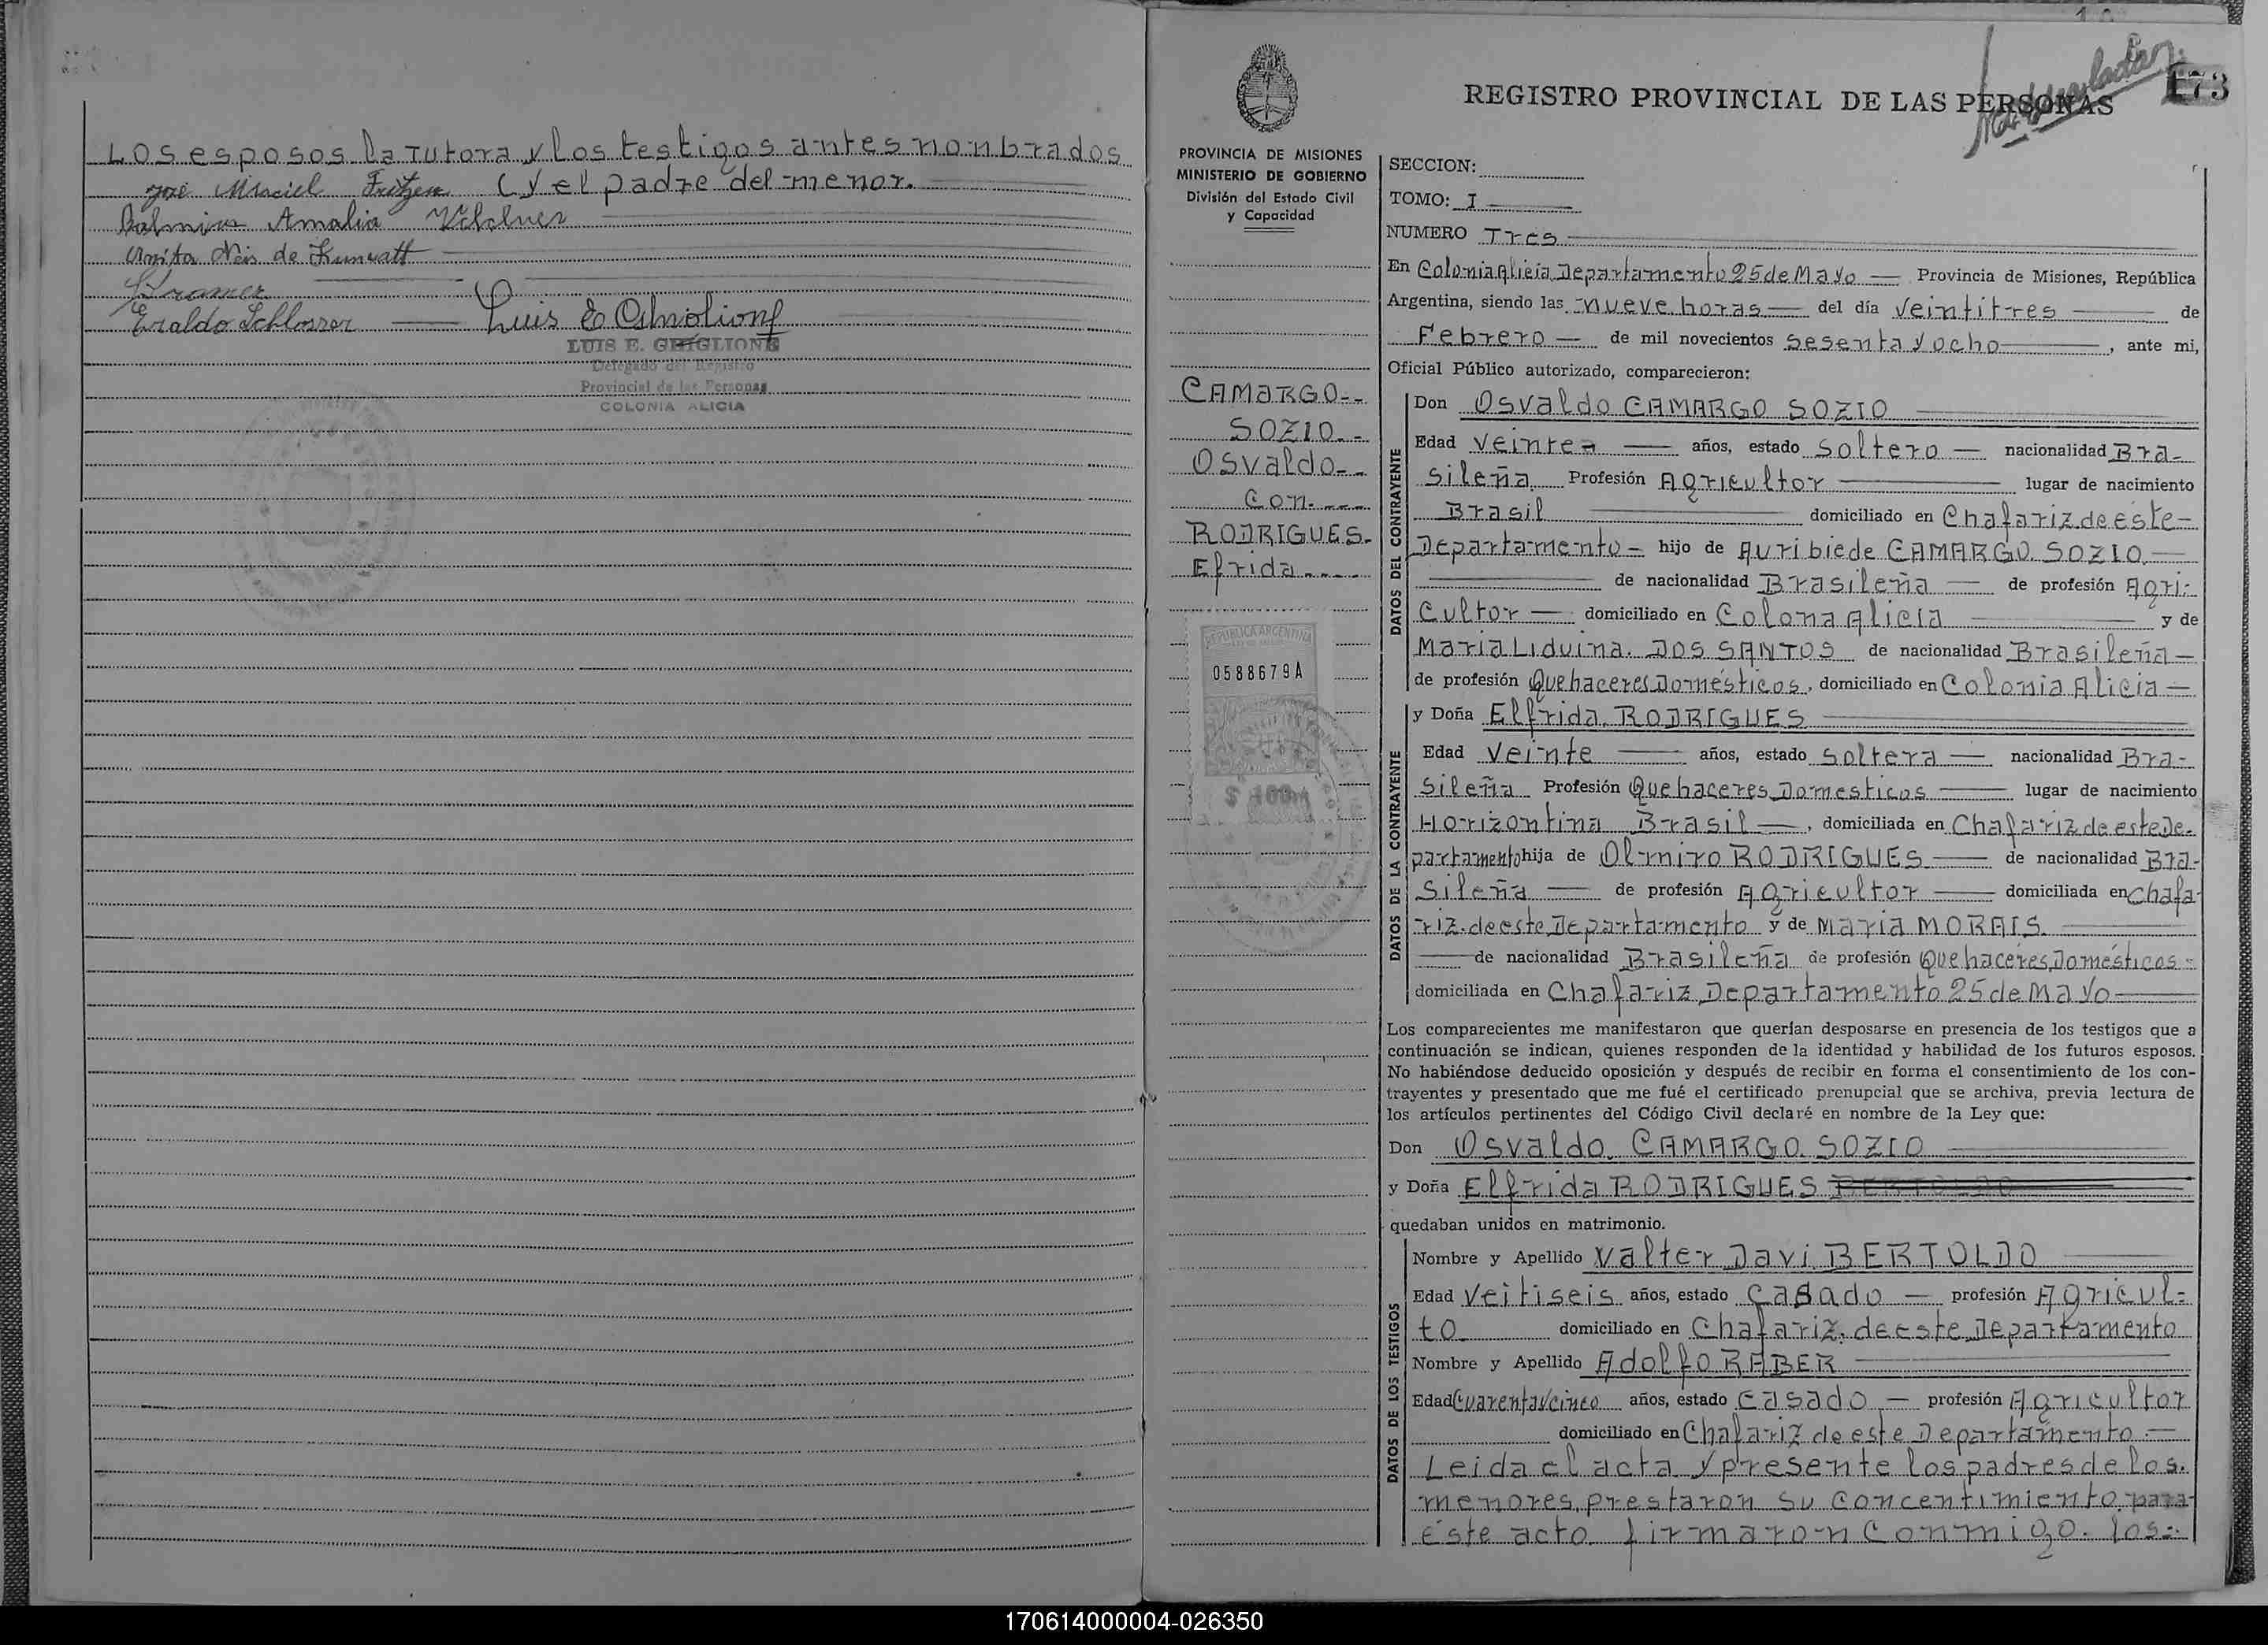 Los esposos la Tutora y los testigos antes nombrados
José Maciel Fritzen (y el padre del menor.
Amalia
Anita Neis de Kunratt
Kramer
Eraldo Schlosser
LUIS E. GHIGLIONE
Delegado del Registro
Provincial de las Personas
COLONIA ALICIA
173
REGISTRO PROVINCIAL DE LAS PERSONAS
PROVINCIA DE MISIONES
MINISTERIO DE GOBIERNO
División del Estado Civil
y Capacidad
CAMARGO--
SOZIO.-
Osvaldo--
Con.---
RODRIGUES.
Efrida----
REPUBLICA ARGENTINA
0588679A
SECCION:
TOMO: I
NUMERO Tres
En Colonia Alicia Departamento 25 de Mayo — Provincia de Misiones, República
Argentina, siendo las nueve horas — del día veintitres — de
Febrero — de mil novecientos sesenta y ocho —, ante mi,
Oficial Público autorizado, comparecieron:
DATOS DEL CONTRAYENTE
Don Osvaldo CAMARGO SOZIO
Edad veintea — años, estado soltero — nacionalidad Bra-
sileña Profesión Agricultor — lugar de nacimiento
Brasil — domiciliado en Chafariz de este-
Departamento - hijo de Auribiede CAMARGO SOZIO —
— de nacionalidad Brasileña — de profesión Agri-
cultor — domiciliado en Colona Alicia — y de
Maria Liduina. DOS SANTOS de nacionalidad Brasileña —
de profesión Quehaceres Domésticos, domiciliado en Colonia Alicia —
DATOS DE LA CONTRAYENTE
y Doña Elfrida RODRIGUES
Edad veinte — años, estado soltera — nacionalidad Bra-
sileña Profesión Quehaceres Domesticos — lugar de nacimiento
Horizontina Brasil —, domiciliada en Chafariz de este De-
partamento hija de Olmiro RODRIGUES — de nacionalidad Bra-
sileña — de profesión Agricultor — domiciliada en Chafa-
riz. de este Departamento y de Maria MORAIS.
— de nacionalidad Brasileña de profesión Quehaceres Domésticos -
domiciliada en Chafariz Departamento 25 de Mayo —
Los comparecientes me manifestaron que querían desposarse en presencia de los testigos que a
continuación se indican, quienes responden de la identidad y habilidad de los futuros esposos.
No habiéndose deducido oposición y después de recibir en forma el consentimiento de los con-
trayentes y presentado que me fué el certificado prenupcial que se archiva, previa lectura de
los artículos pertinentes del Código Civil declaré en nombre de la Ley que:
Don Osvaldo. CAMARGO. SOZIO
y Doña Elfrida RODRIGUES BERTOLDO
quedaban unidos en matrimonio.
DATOS DE LOS TESTIGOS
Nombre y Apellido Valter Davi BERTOLDO
Edad Veitiseis años, estado casado — profesión Agricul-
to domiciliado en Chafariz. de este Departamento
Nombre y Apellido Adolfo RABER
Edad Cuarenta y cinco años, estado casado — profesión Agricultor
domiciliado en Chafariz de este Departamento —
Leida el acta y presente los padres de los.
menores, prestaron su concentimiento para
éste acto firmaron conmigo. los-
170614000004-026350